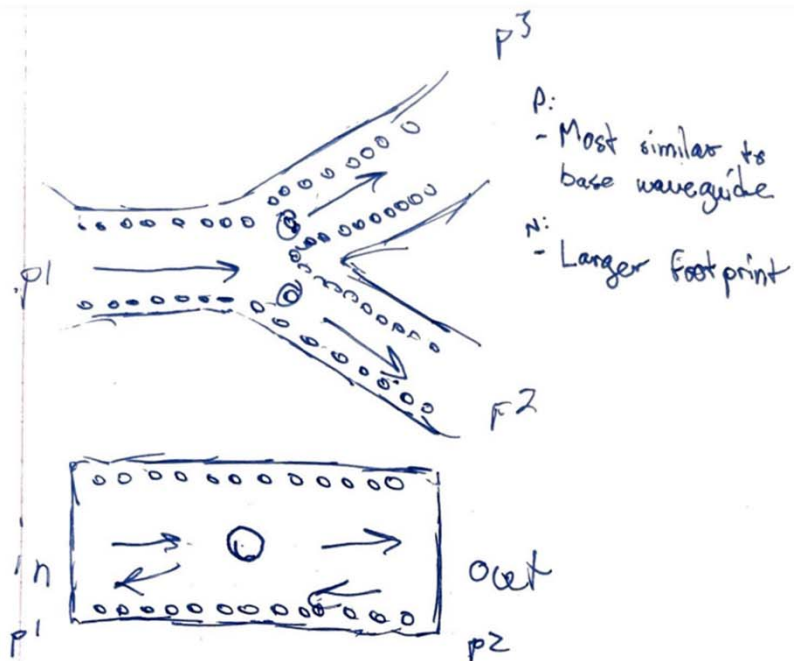 p3
P:
- Most similar to
base waveguide
N:
- Larger footprint
p1
p2
in
out
p1
p2